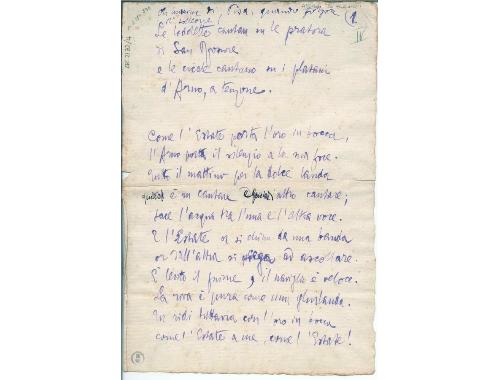 Le lodolette cantan su le pratora
di San Rossore
e le cicale cantano su i platani
d'Arno, a tenzone.
Come l'Estate porta l'oro in bocca,
l'Arno porta il silenzio a la sua foce.
Tutto il mattino per la dolce landa
quinci è un cantare e quindi altro cantare;
tace l'acqua tra l'una e l'altra voce.
E l'Estate or si china da una banda
or dall'altra si piega ad ascoltare.
È lento il fiume, il naviglio è veloce.
La riva è pura come una ghirlanda.
Tu ridi tuttavia con l'oro in bocca
come l'Estate a me, come l'Estate!